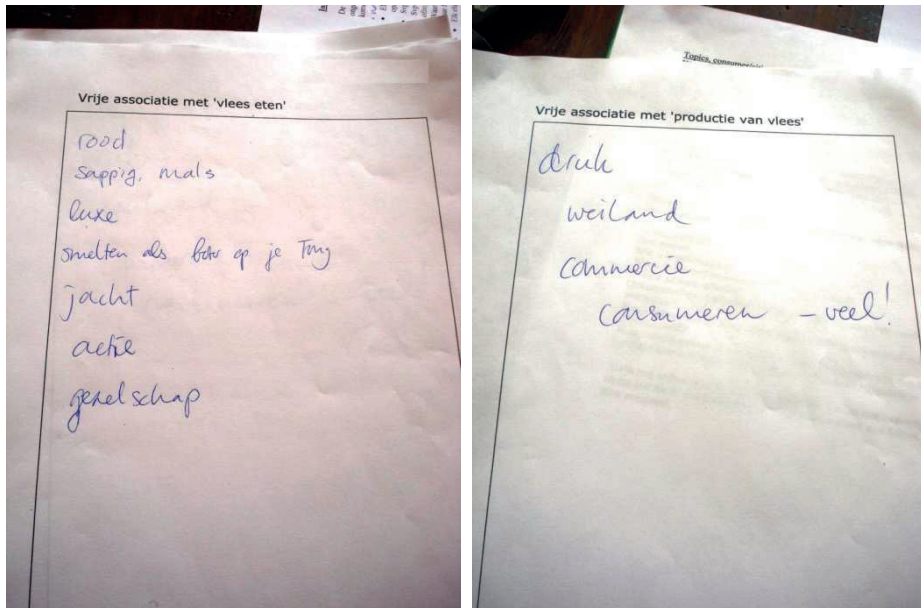 Vrije associatie met 'vlees eten'
rood
sappig, mals
luxe
smelten als boter op je Tong
jacht
actie
gezelschap
Topics, consument
Vrije associatie met 'productie van vlees'
druk
weiland
commercie
consumeren – veel!